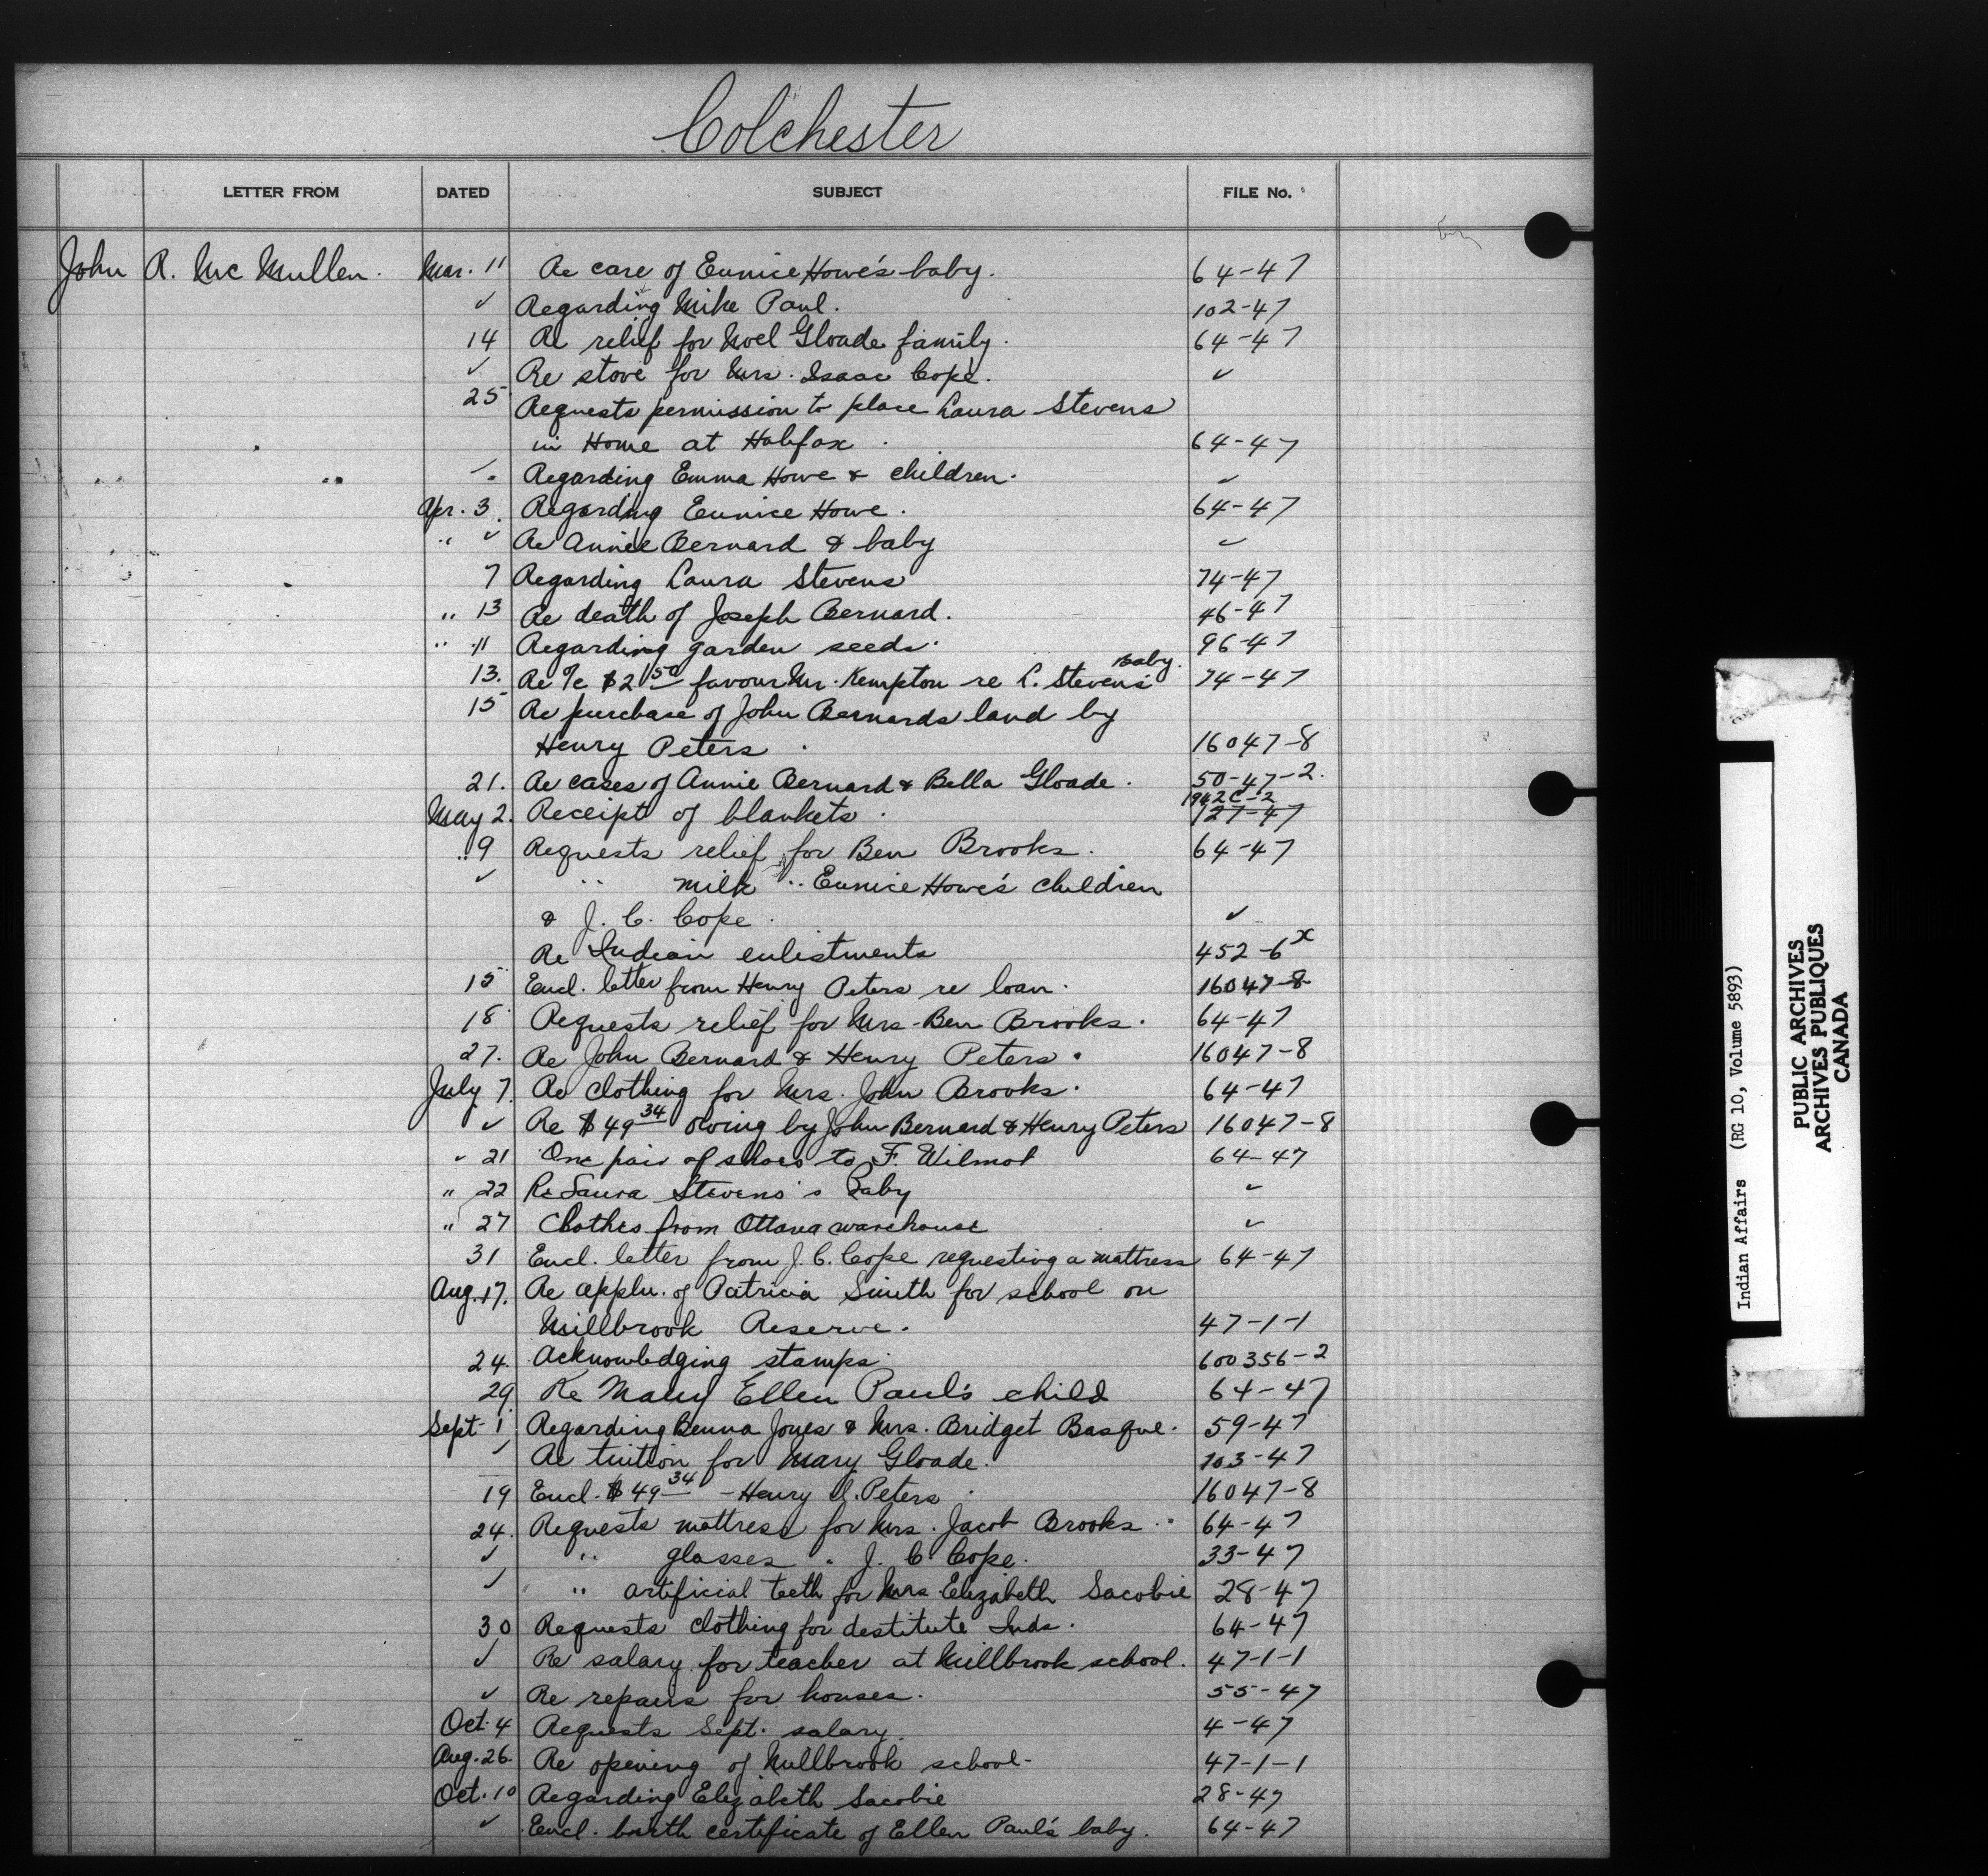 Colchester
LETTER FROM DATED SUBJECT FILE No.
John R. McMullen. Mar. 11 Re care of Eunice Howe's baby. 64-47
✓ Regarding Mike Paul. 102-47
14 Re relief for Noel Gloade family. 64-47
✓ Re stove for Mrs. Isaac Cope. ✓
25 Requests permission to place Laura Stevens
in Home at Halifax. 64-47
Regarding Emma Howe & children. ✓
Apr. 3. Regarding Eunice Howe. 64-47
" ✓ Re Annie Bernard & baby ✓
7 Regarding Laura Stevens 74-47
" 13 Re death of Joseph Bernard. 46-47
" 11 Regarding garden seeds. 96-47
13. Re %c $2 50 favour Mr. Kempton re L. Stevens' Baby. 74-47
15 Re purchase of John Bernards land by
Henry Peters. 16047-8
21. Re cases of Annie Bernard & Bella Gloade. 50-47-2.
1942C-2
May 2. Receipt of blankets. 127-47
" 9 Requests relief for Ben Brooks. 64-47
✓ " milk " Eunice Howe's children
& J. C. Cope. ✓
Re Indian enlistments 452-6x
15 Encl. letter from Henry Peters re loan. 16047-8
18 Requests relief for Mrs. Ben Brooks. 64-47
27. Re John Bernard & Henry Peters. 16047-8
July 7. Re clothing for Mrs. John Brooks. 64-47
✓ Re $49 34 owing by John Bernard & Henry Peters 16047-8
✓ 21 One pair of shoes to F. Wilmot 64-47
" 22 Re Laura Stevens's Baby ✓
" 27 Clothes from Ottawa warehouse ✓
31 Encl. letter from J. C. Cope requesting a mattress 64-47
Aug. 17. Re appln. of Patricia Smith for school on
Millbrook Reserve. 47-1-1
24. Acknowledging stamps. 600356-2
29 Re Mary Ellen Paul's child 64-47
Sept. 1 Regarding Benna Jones & Mrs. Bridget Basque. 59-47
✓ Re tuition for Mary Gloade. 103-47
19 Encl. $49 34 - Henry Peters. 16047-8
24. Requests mattress for Mrs. Jacob Brooks. 64-47
✓ " glasses " J. C. Cope. 33-47
✓ " artificial teeth for Mrs. Elizabeth Sacobie 28-47
30 Requests clothing for destitute Inds. 64-47
✓ Re salary for teacher at Millbrook school. 47-1-1
✓ Re repairs for houses. 55-47
Oct. 4 Requests Sept. salary. 4-47
Aug. 26. Re opening of Millbrook school- 47-1-1
Oct. 10 Regarding Elizabeth Sacobie 28-47
✓ Encl. birth certificate of Ellen Paul's baby. 64-47
Indian Affairs (RG 10, Volume 5893)
PUBLIC ARCHIVES
ARCHIVES PUBLIQUES
CANADA